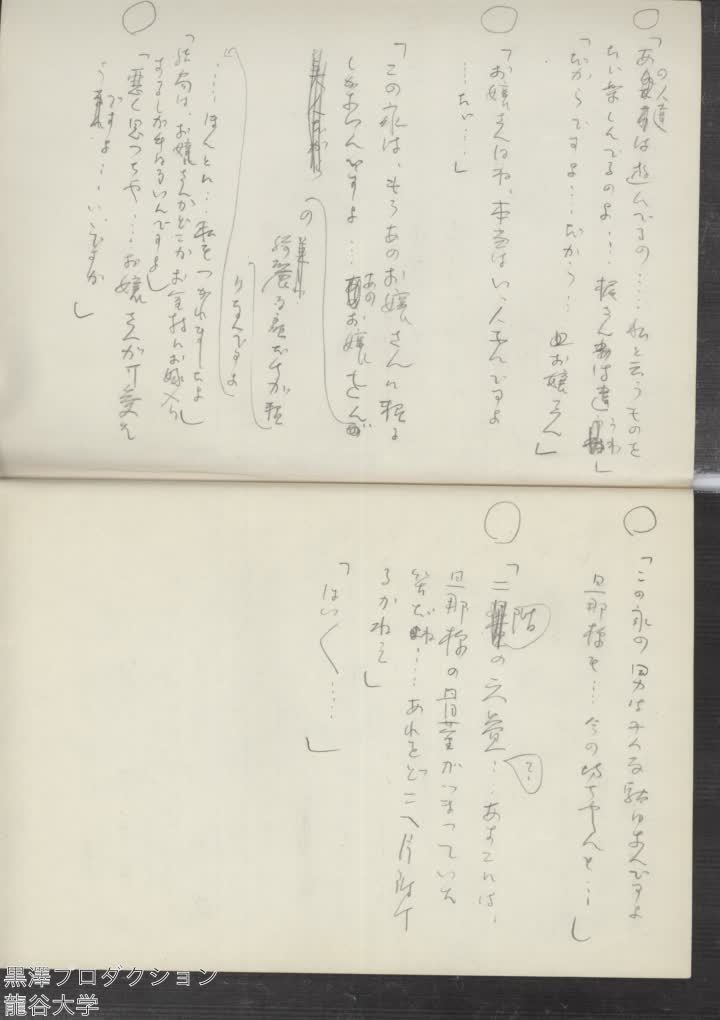 「あの人達は遊んでるの……私と云うものを
たい楽しんでるのよ……桜さんは違うわ」
「だからですよ……だから……お嬢さん」
「お嬢さんはね、本当はいゝ人なんですよ
……たい……」
「この家は、もうあのお嬢さんに頼る
しかないんですよ……あのお嬢さんの
綺麗な顔だけが頼
りなんですよ
……ほんとに…私をつかれますわよ」
「結局は、お嬢さんがどこかお金持にお嫁入り
するしか手はないんですよ」
「悪く思っちゃ……お嬢さんが可哀そ
うですよ……いゝですか」
「この家の男はみんな駄目なんですよ
旦那様も…今の坊ちゃんも…」
「二階の六畳…あすこには、
旦那様の骨董がつまっていた
筈だね……あれをどっこへ片附け
るかねえ」
「はい〱……」
黒澤プロダクション
龍谷大学